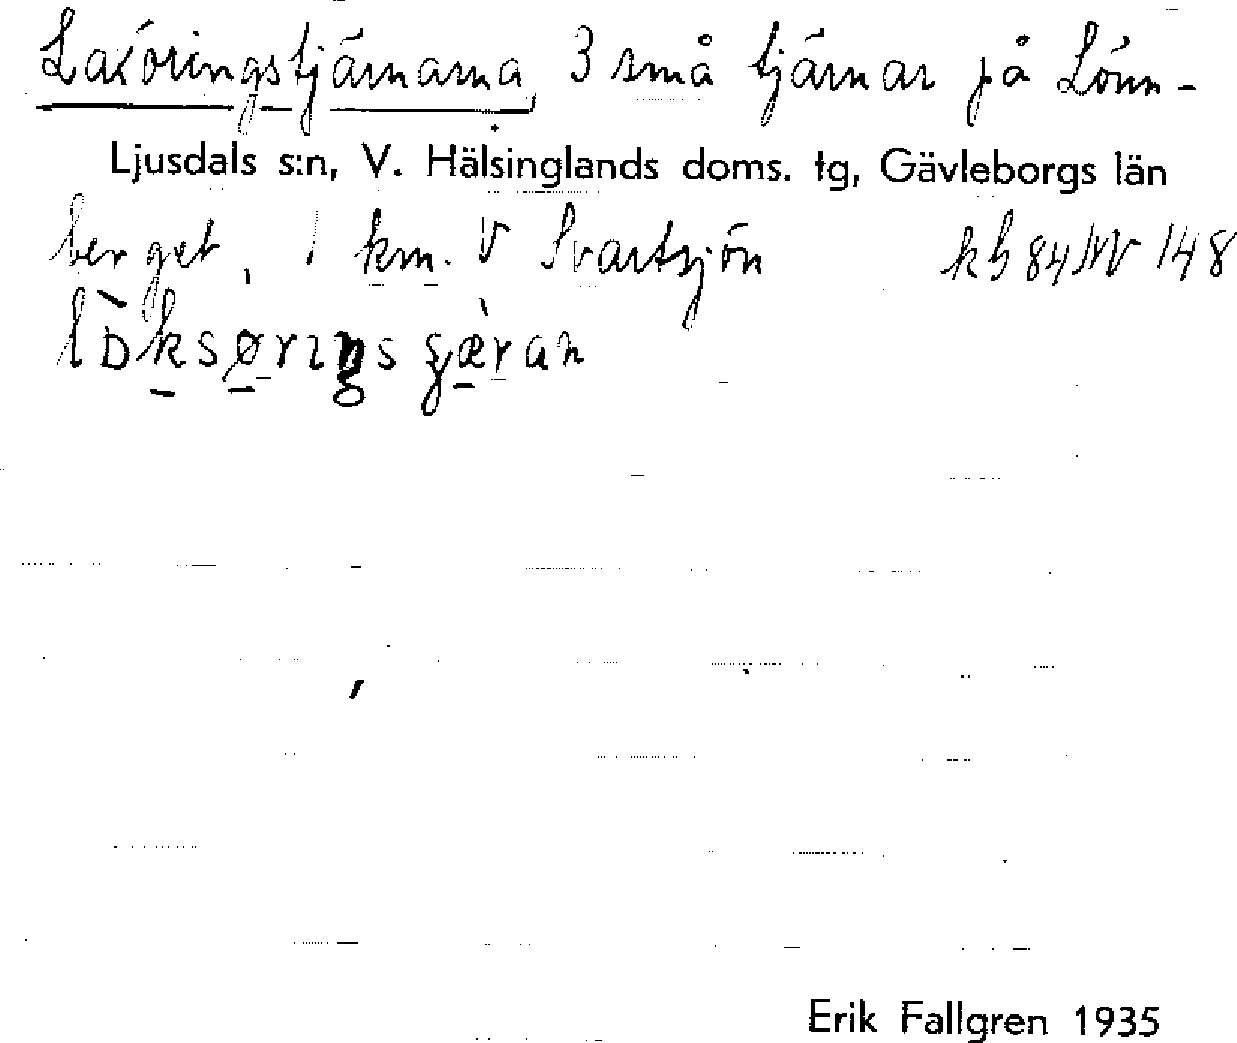 Laxöringstjärnarna, 3 små tjärnar på Lönn-
Ljusdals s:n, V. Hälsinglands doms. tg, Gävleborgs län
berget, 1 km. V Svartsjön kb 84 NV 148
Erik Fallgren 1935